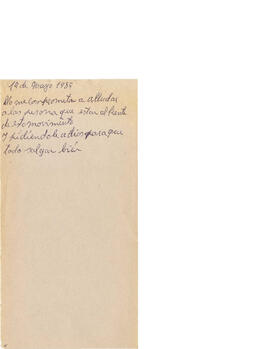 14 de Mayo 1989
Yo me comprometo a alludar
a las persona que estar al frente
de este movimiento
Y pidiendole a dios para que
todo salgar bién